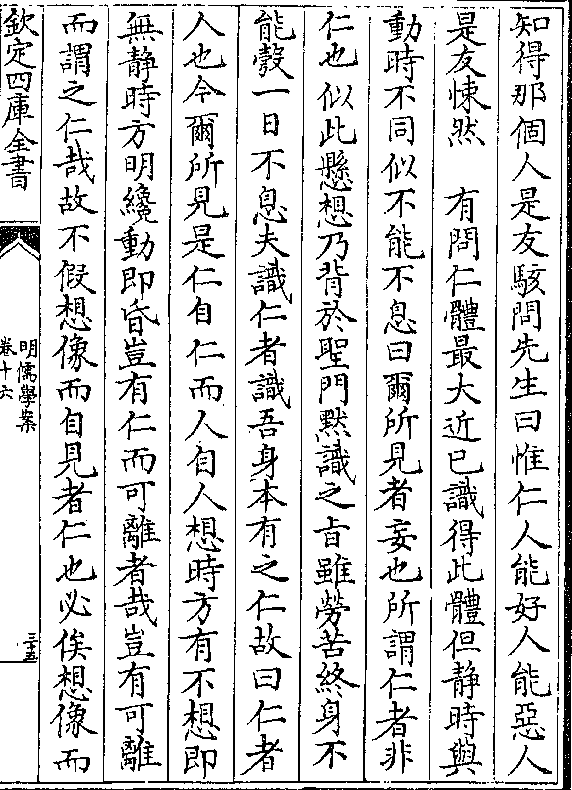 知得那個人是友駭問先生曰惟仁人能好人能惡人
是友悚然　有問仁體最大近已識得此體但静時與
動時不同似不能不息曰爾所見者妄也所謂仁者非
仁也似此懸想乃背於聖門黙識之㫖雖勞苦終身不
能彀一日不息夫識仁者識吾身本有之仁故曰仁者
人也今爾所見是仁自仁而人自人想時方有不想即
無静時方明纔動即昏豈有仁而可離者哉豈有可離
而謂之仁哉故不假想像而自見者仁也必俟想像而
欽定四庫全書
明儒學案
卷十六
三十五